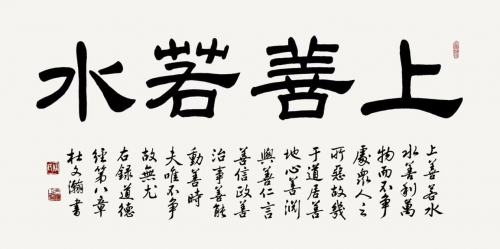 上善若水
上善若水
水善利萬
物而不争
處衆人之
所惡故幾
于道居善
地心善渊
與善仁言
善信政善
治事善能
動善時
夫唯不争
故無尤
右録道德
經第八章
杜文瀚書